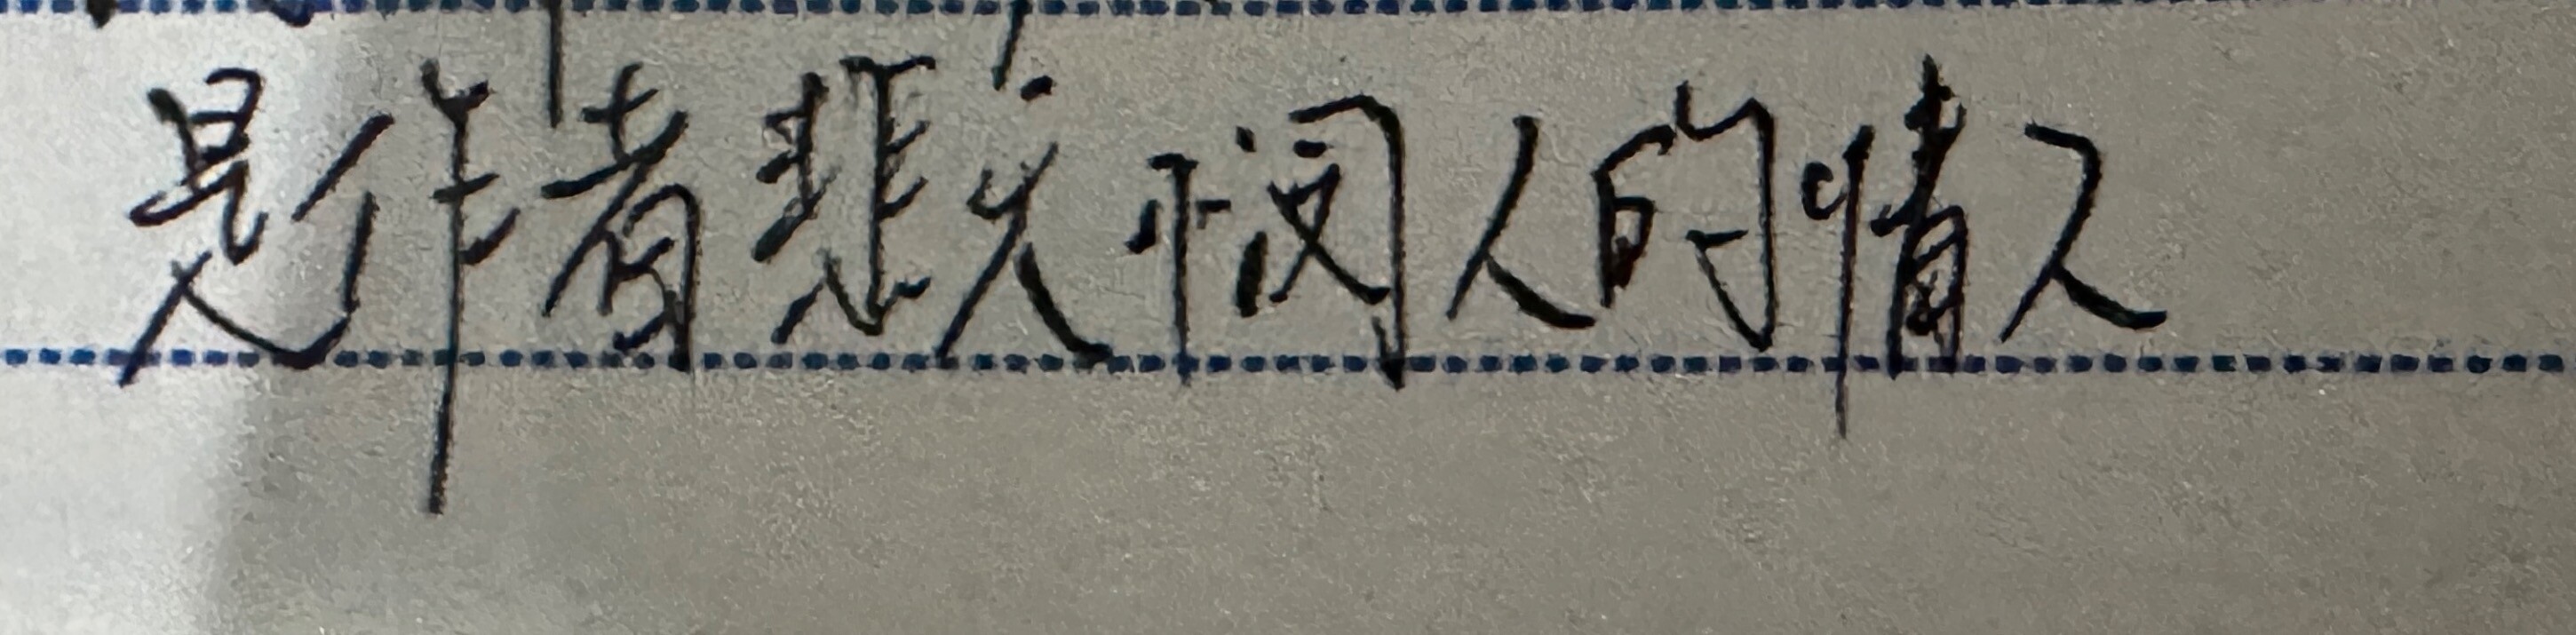 是作者悲天悯人的情又